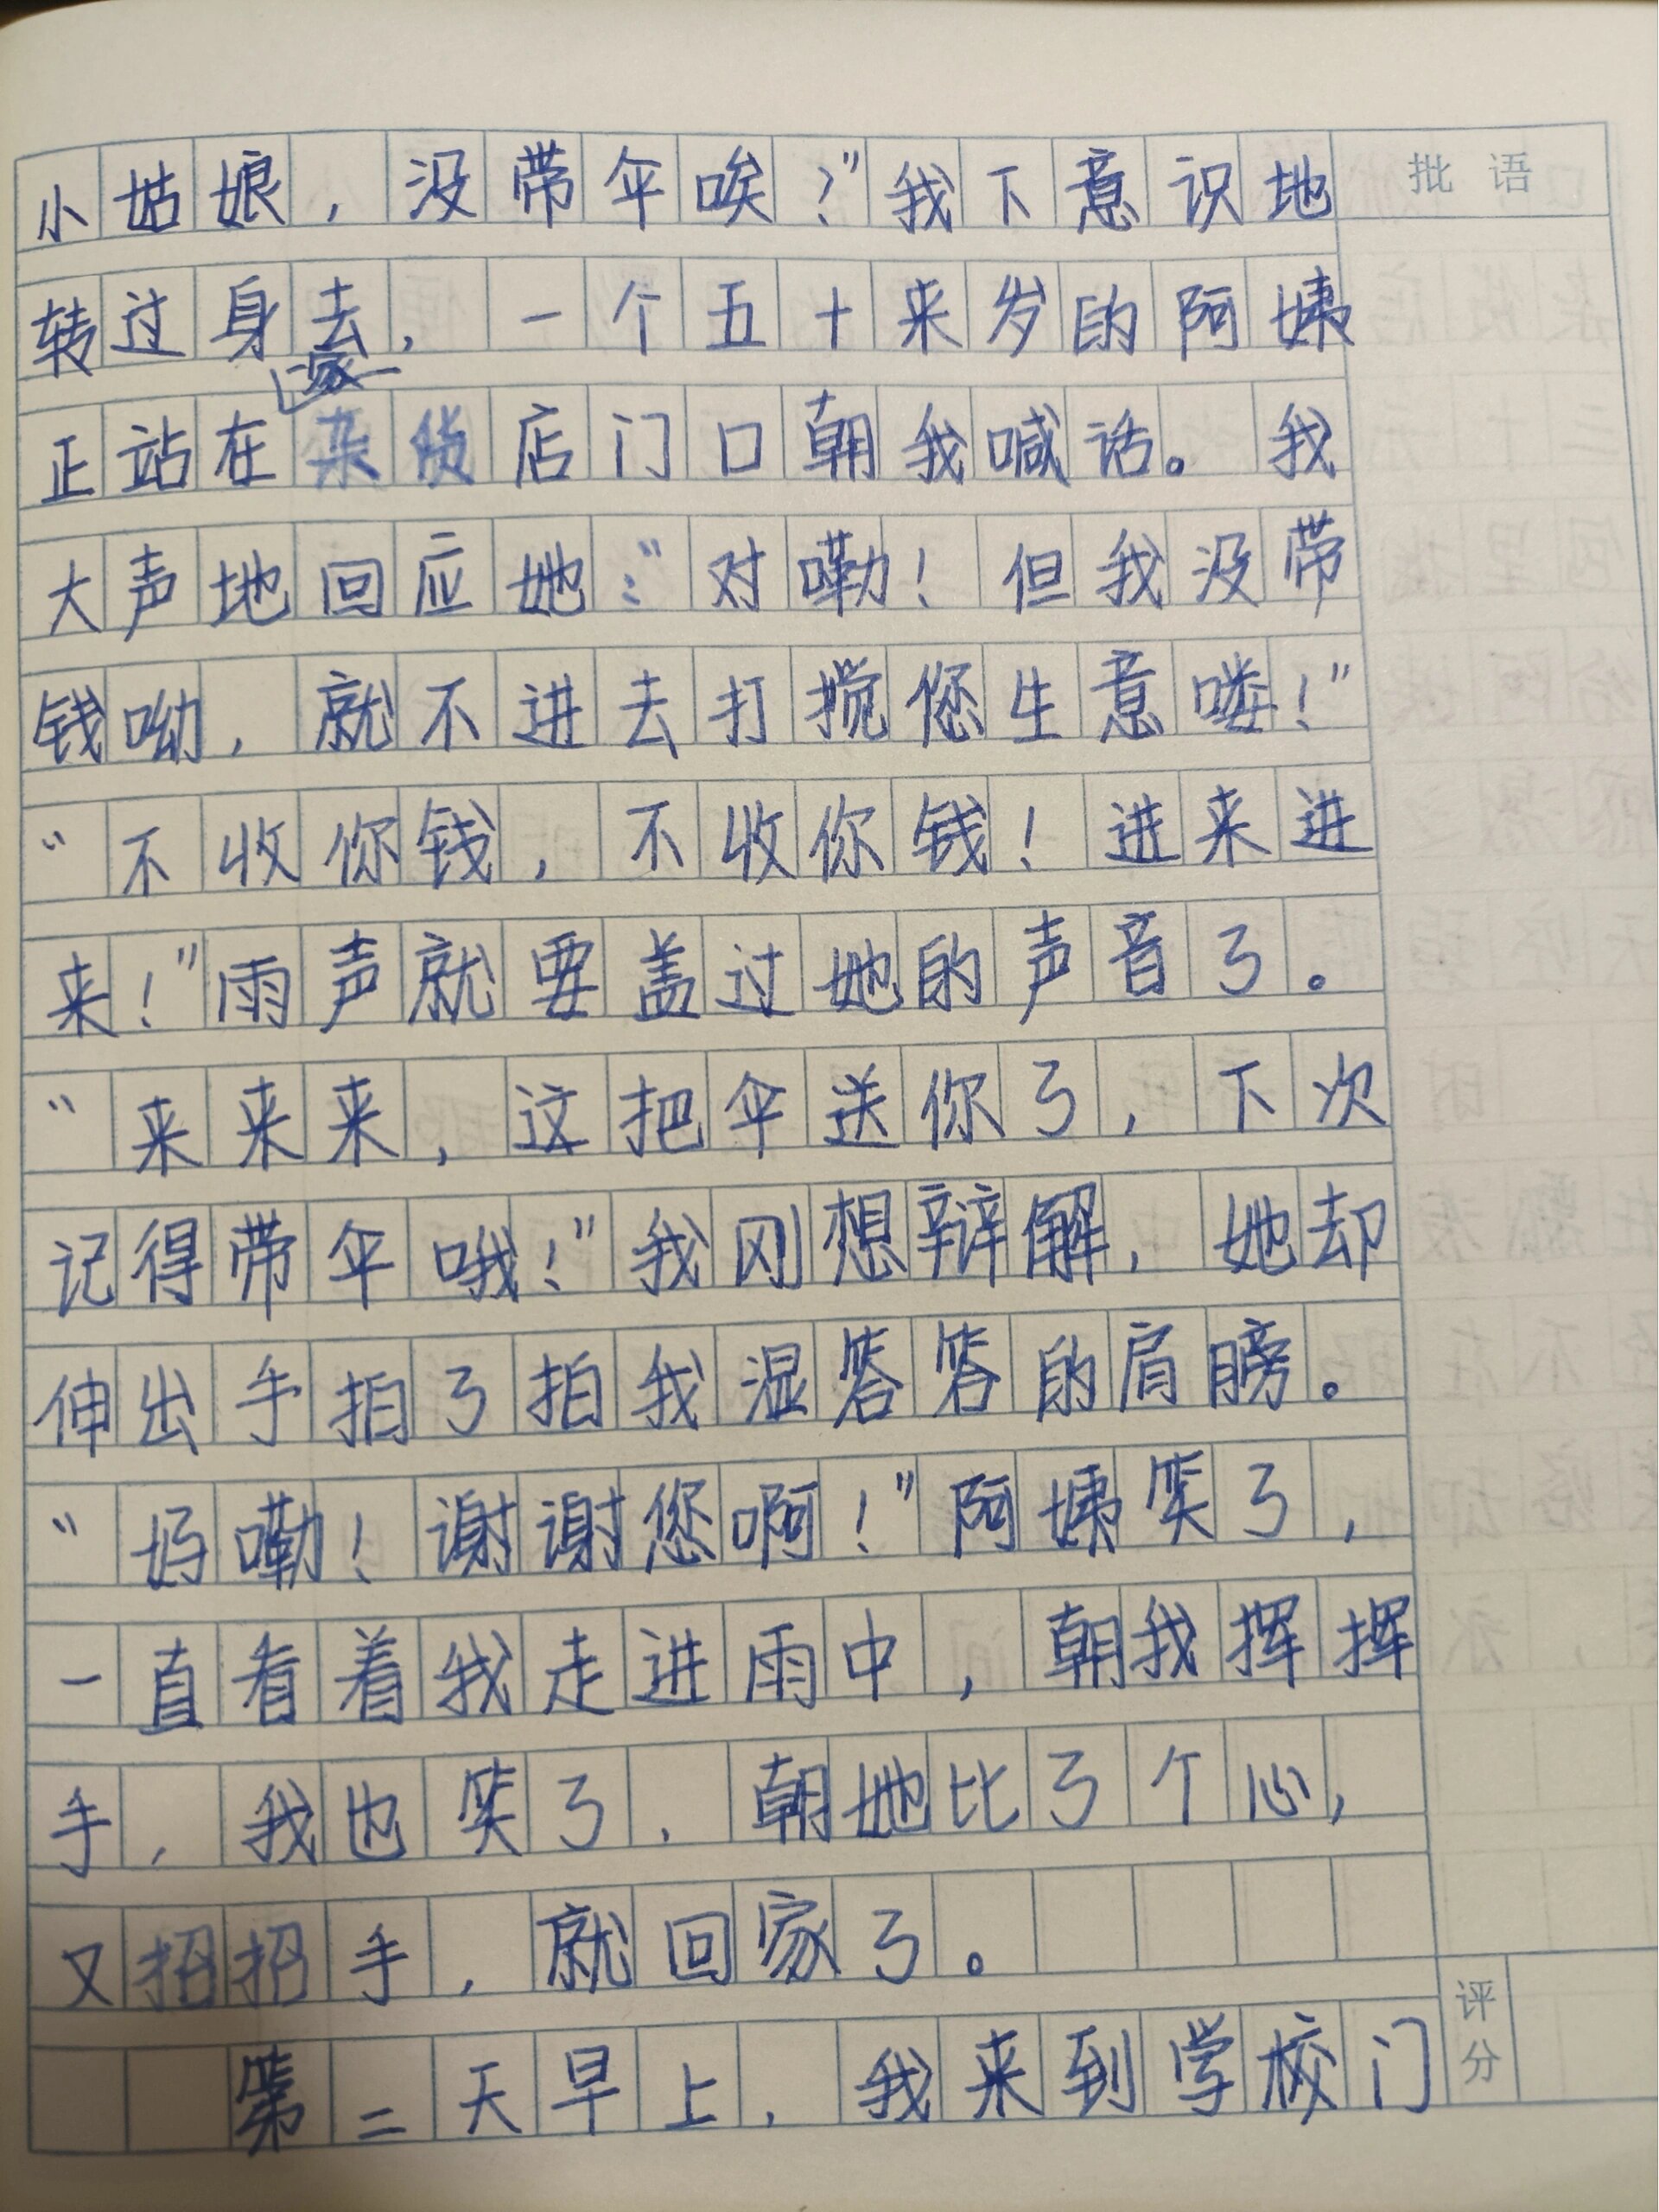 小姑娘，没带伞唉？”我下意识地
批语
转过身去，一个五十来岁的阿姨
正站在杂货店门口朝我喊话。我
大声地回应她：“对嘞！但我没带
钱呦，就不进去打搅您生意喽！”
“不收你钱，不收你钱！进来进
来！”雨声就要盖过她的声音了。
“来来来，这把伞送你了，下次
记得带伞哦！”我刚想辩解，她却
伸出手拍了拍我湿答答的肩膀。
“好嘞！谢谢您啊！”阿姨笑了，
一直看着我走进雨中，朝我挥挥
手，我也笑了，朝她比了个心，
又招招手，就回家了。
第二天早上，我来到学校门
评分